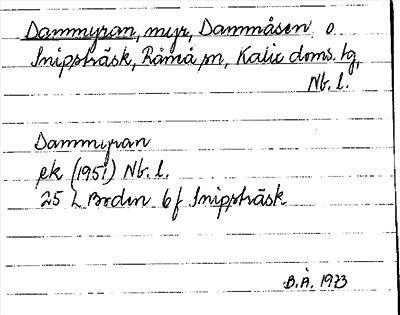 Dammyran, myr, Dammåsen o.
Snippträsk, Råneå sn, Kalix doms. tg,
Nb. l.
Dammyran
ek (1951) Nb. l.
25 L Boden 6 f Snippträsk
B. Å. 1973